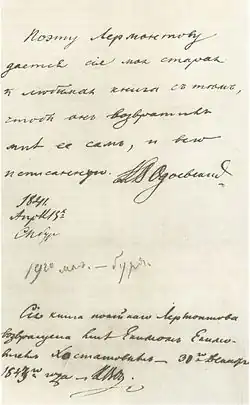 Поэту Лермонтову
дается сіе моя старая
и любимая книга съ тѣмъ,
чтобъ онъ возвратилъ
мнѣ ее самъ, и всю
исписанную.
К В Одоевский
1841.
Апрѣля 13е
С.пбург
19го мая. — буря.
Сія книга покойнаго Лермонтова
возвращена мнѣ Екимомъ Екимо-
вичемъ Хостатовымъ — 30го Декабря
1843го года. —